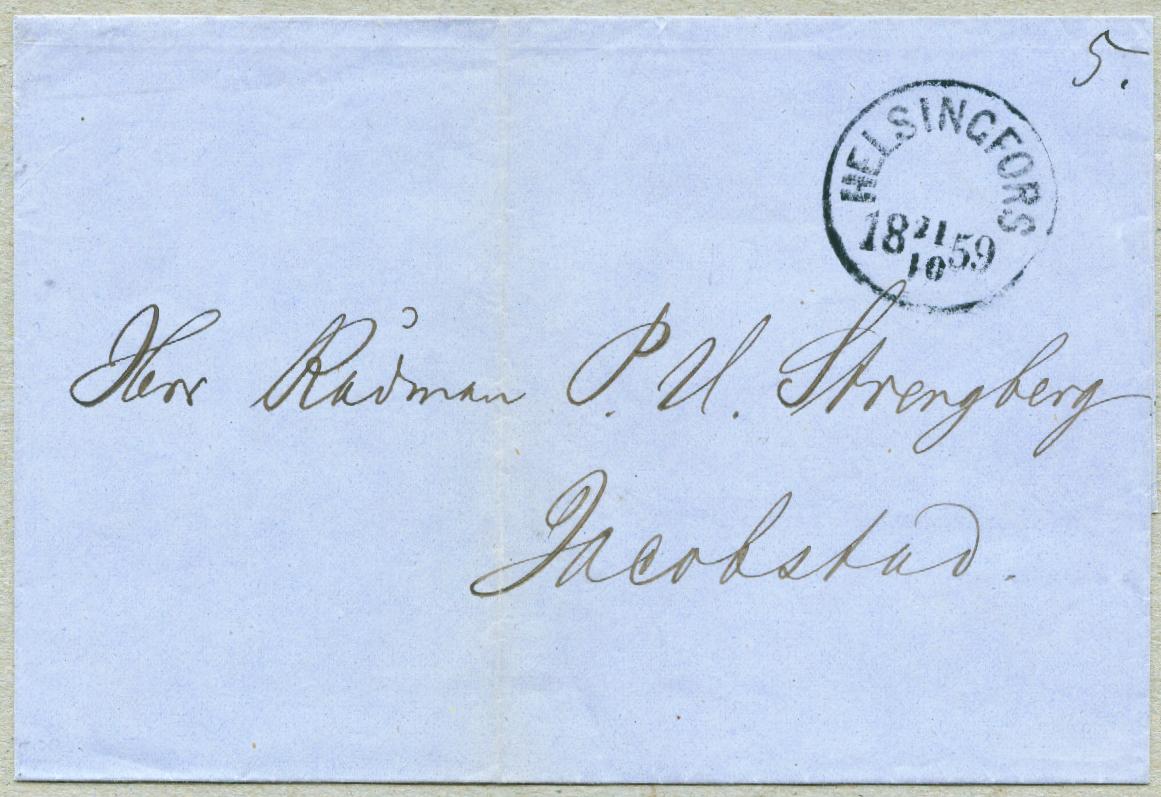 5.
HELSINGFORS
18 21/10 59
Herr Rådman P. U. Strengberg
Jacobstad.